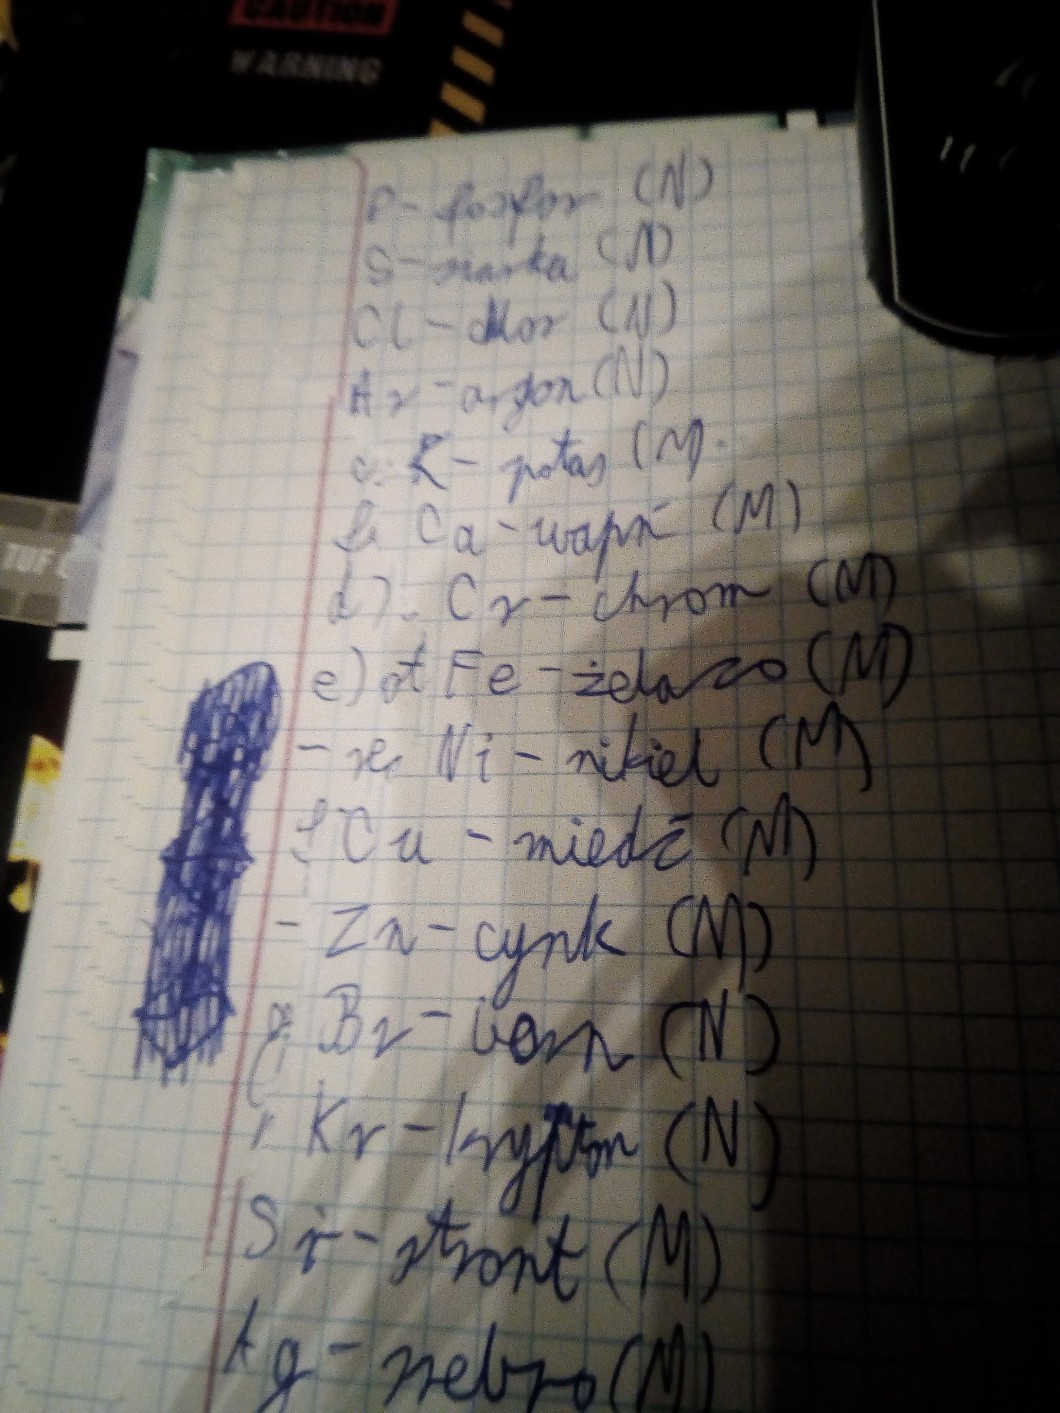 CAUTION
WARNING
P - fosfor (N)
S - siarka (N)
Cl - chlor (N)
Ar - argon (N)
K - potas (M)
Ca - wapń (M)
d) Cr - chrom (M)
e) Fe - żelazo (M)
- Ni - nikiel (M)
Cu - miedź (M)
- Zn - cynk (M)
Br - (N)
Kr - krypton (N)
Sr - stront (M)
Ag - srebro (M)
TUF